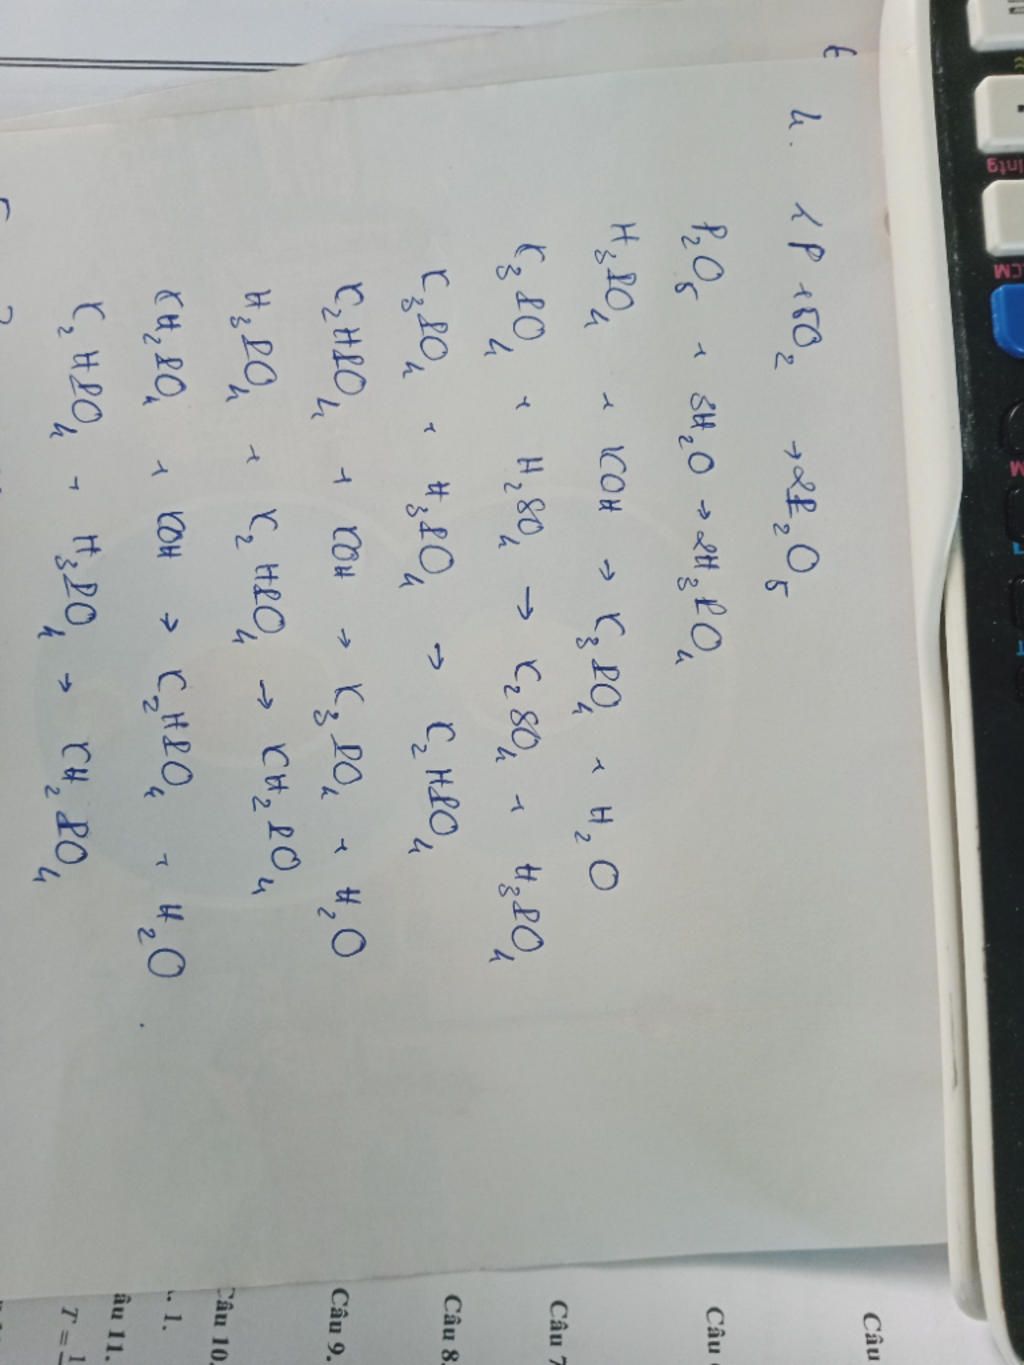 4. 4P + 5O₂ → 2P₂O₅
P₂O₅ + 3H₂O → 2H₃PO₄
H₃PO₄ + KOH → K₃PO₄ + H₂O
K₃PO₄ + H₂SO₄ → K₂SO₄ + H₃PO₄
K₃PO₄ + H₃PO₄ → K₂HPO₄
K₂HPO₄ + KOH → K₃PO₄ + H₂O
H₃PO₄ + K₂HPO₄ → KH₂PO₄
KH₂PO₄ + KOH → K₂HPO₄ + H₂O
K₂HPO₄ + H₃PO₄ → KH₂PO₄
Câu
Câu
Câu 7
Câu 8.
Câu 9.
Câu 10.
. 1.
âu 11.
T = 1
CM
M